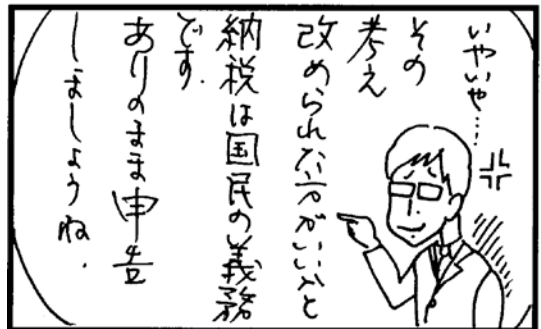 いやいや…
その
考え
改められた方がいいかと
納税は国民の義務
です.
ありのまま申告
しましょうね.